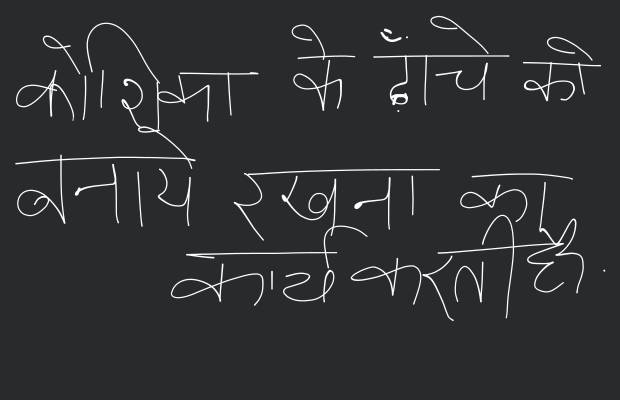 कोशिका के ढाँचे को
बनाये रखना का
कार्य करती है.